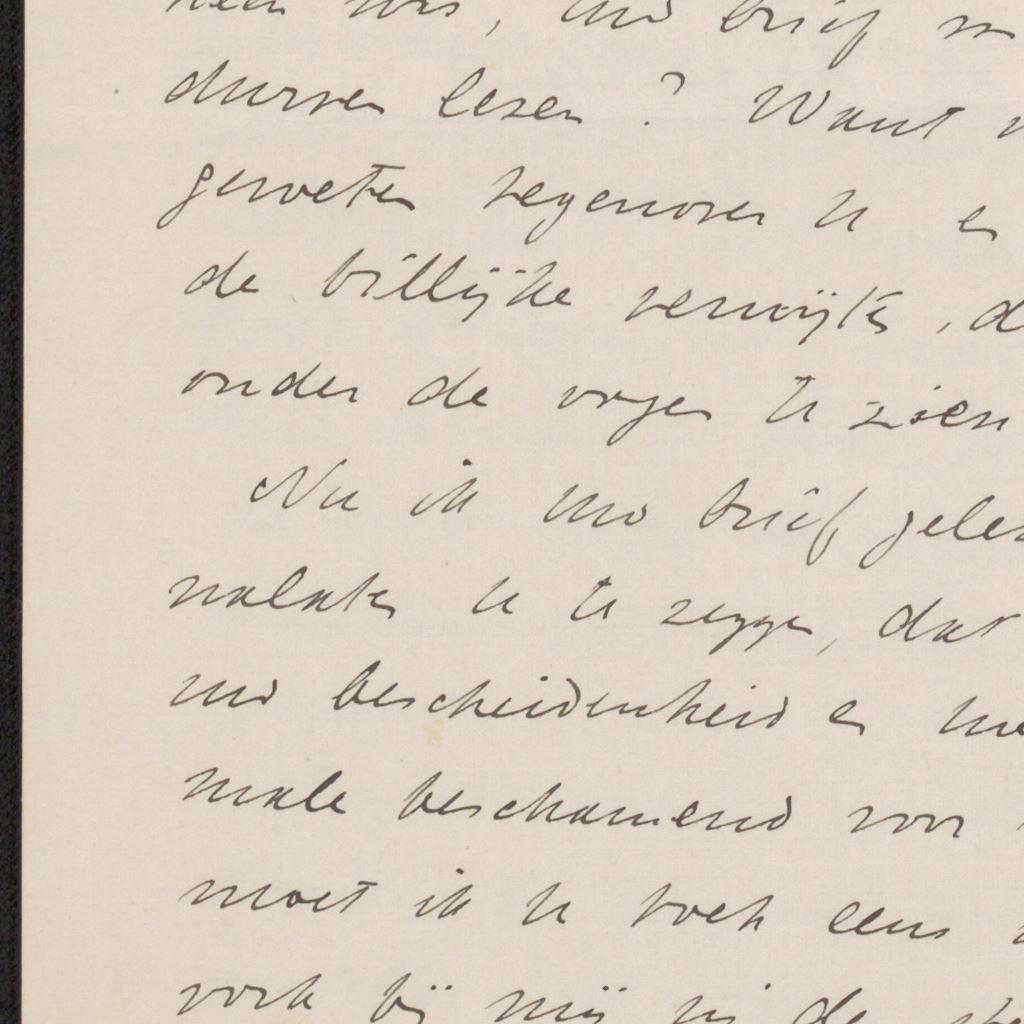 uw brief
durven lezen? Want
geweten tegenover U en
de billijke verwijten, d
onder de oogen te zien
Nu ik uw brief gelez
nalaten U te zeggen, dat
uw bescheidenheid en uw
male beschamend voor
moet ik U toch eens
vork bij mij in de ste